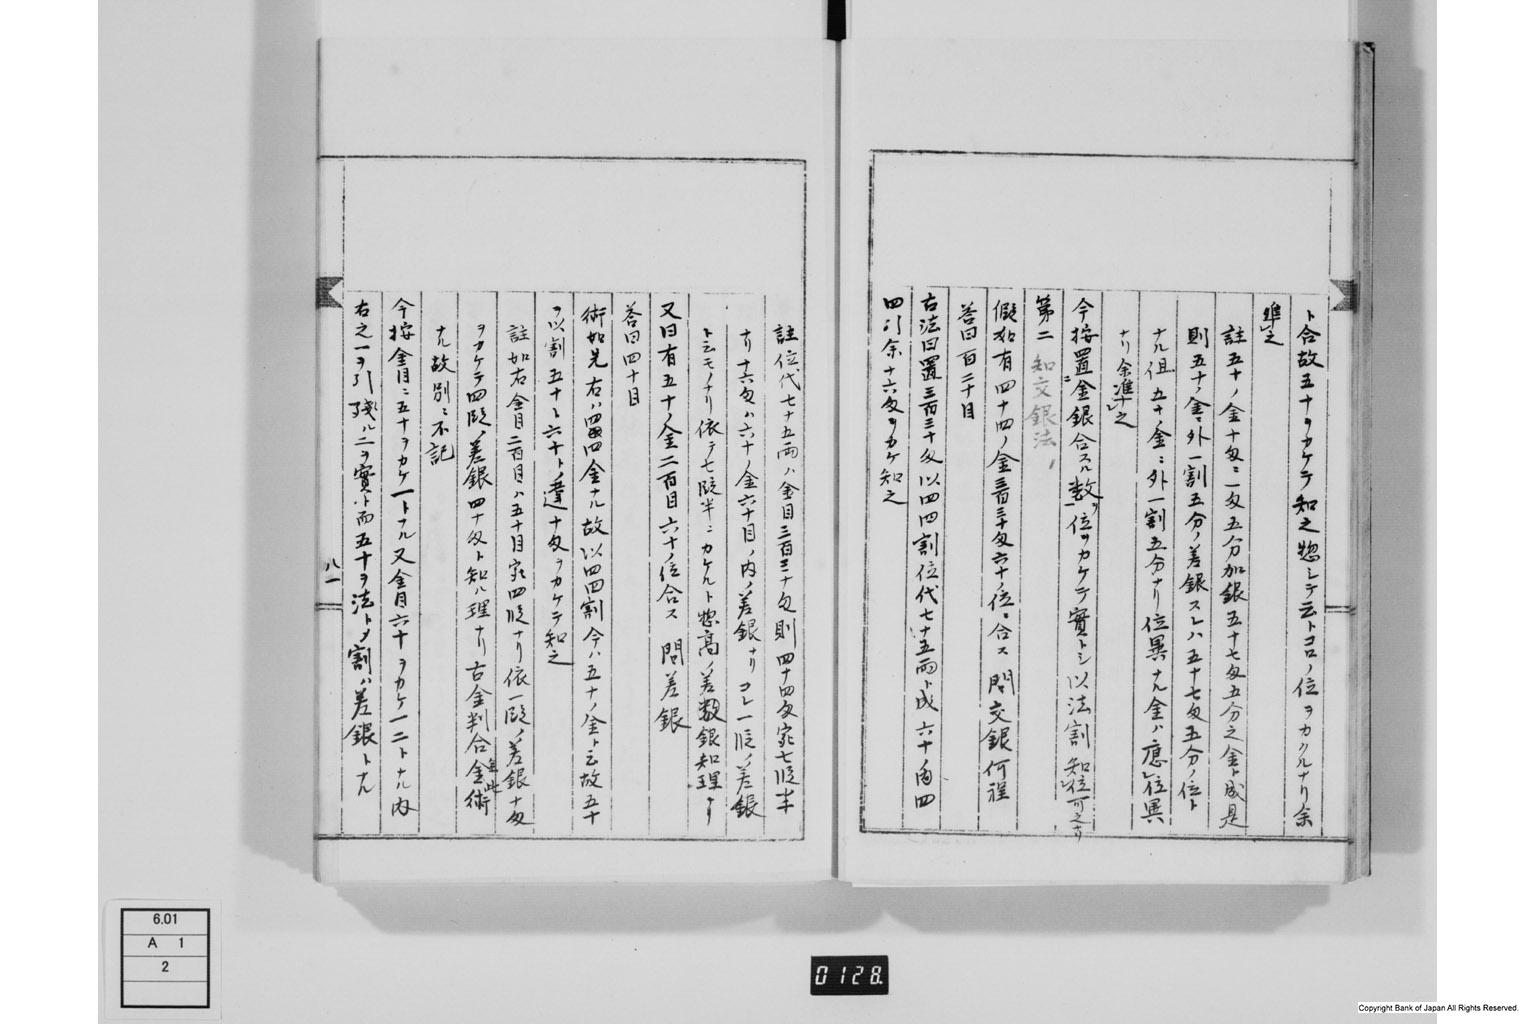 ト合故五十ヲカケテ知之惣シテ云トコロノ位ヲカクルナリ余
準之
註五十ノ金十匁ニ一匁五分加銀五十七匁五分之金ト成是
則五十ノ金ニ外一割五分ノ差銀スレハ五十七匁五分ノ位ト
ナル但五十ノ金ニ外一割五分ナリ位異ナル金ハ應位異
ナリ余準之
今按置金銀合スル数ニ位ヲカケテ實トシ以法割知位可之ナリ
第二 知交銀法
假如有四十四ノ金三百三十匁六十ノ位ニ合ス問交銀何程
答曰百二十目
古法曰置三百三十匁以四四割位代七十五両ト成六十ノ内四
四引余十六匁ヲカケ知之
註位代七十五両ハ金目三百三十匁則四十四匁宛七段半
ナリ十六匁ハ六十ノ金六十目ノ内ノ差銀ナリコレ一段ノ差銀
ト云モノナリ依テ七段半ニカケルト惣高ノ差数銀知理ナリ
又曰有五十ノ金二百目六十ノ位合ス問差銀
答曰四十目
術如先右ハ四四金ナル故以四四割今ハ五十ノ金ト云故五十
ヲ以割五十ト六十トノ違十匁ヲカケテ知之
註如右金目二百目ハ五十目宛四段ナリ依一段ノ差銀十匁
ヲカケテ四段ノ差銀四十匁ト知ル理ナリ古金判合金術
ナル故別ニ不記
今按金目ニ五十ヲカケ一トナル又金目六十ヲカケ一ニトナル内
右之一ヲ引残ル二ヲ實ト而五十ヲ法トノ割ハ差銀トナル
八一
6.01
A 1
2
0128
Copyright Bank of Japan All Rights Reserved.